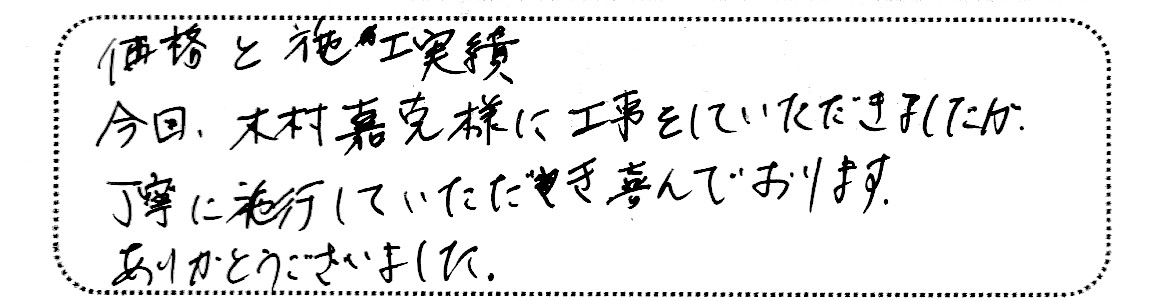 価格と施工実績
今回、木村嘉克様に工事をしていただきましたが、
丁寧に施行していただき喜んでおります。
ありがとうございました。